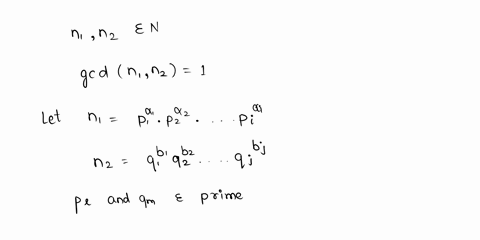 n₁, n₂ ∈ N
gcd (n₁, n₂) = 1
Let n₁ = p₁^a₁ · p₂^a₂ · .... pᵢ^aᵢ
n₂ = q₁^b₁ q₂^b₂ ..... qⱼ^bⱼ
pₗ and qₘ ∈ prime